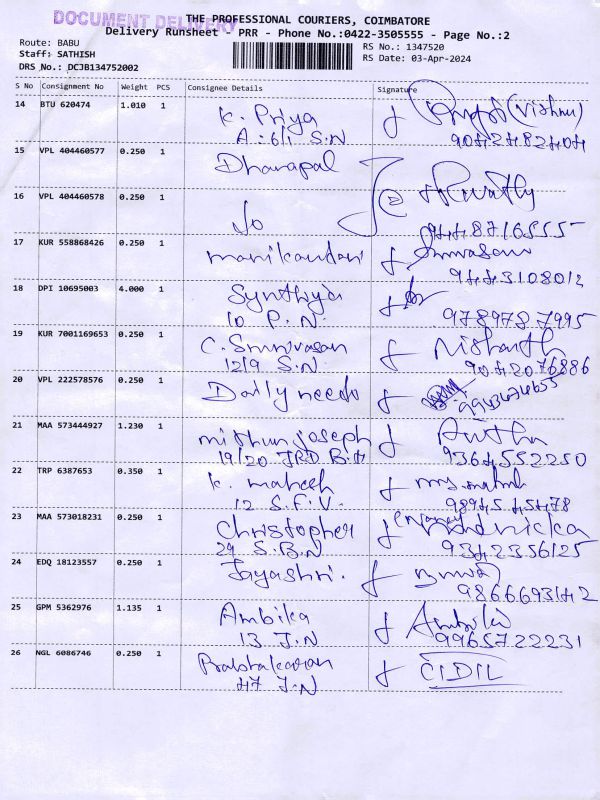 DOCUMENT DELIVERY
THE PROFESSIONAL COURIERS, COIMBATORE
Delivery Runsheet - PRR - Phone No.:0422-3505555 - Page No.:2
Route: BABU
Staff: SATHISH
DRS No.: DCJB134752002
RS No.: 1347520
RS Date: 03-Apr-2024
S No Consignment No Weight PCS Consignee Details Signature
14 BTU 620474 1.010 1 K. Priya (Vishnu)
A:6/1 S.N 9042482404
15 VPL 404460577 0.250 1 Dhanapal
16 VPL 404460578 0.250 1 do
9448716555
17 KUR 558868426 0.250 1 manikandan Srinivasan
9443108012
18 DPI 10695003 4.000 1 Synthya
10 P.N. 9789787995
19 KUR 7001169653 0.250 1 C. Srinivasan Nishanth
12/9 S.N 9042076886
20 VPL 222578576 0.250 1 Daily needs
21 MAA 573444927 1.230 1 mithun joseph
19/20 JRD 9364552250
22 TRP 6387653 0.350 1 K. mahesh
12 S.F.V. 9894545478
23 MAA 573018231 0.250 1 Christopher
29 S.B.N 9342356125
24 EDQ 18123557 0.250 1 Jayashri.
9866693142
25 GPM 5362976 1.135 1 Ambika
13 J.N 9965722231
26 NGL 6086746 0.250 1 Prabhakaran CIDIL
47 J.N